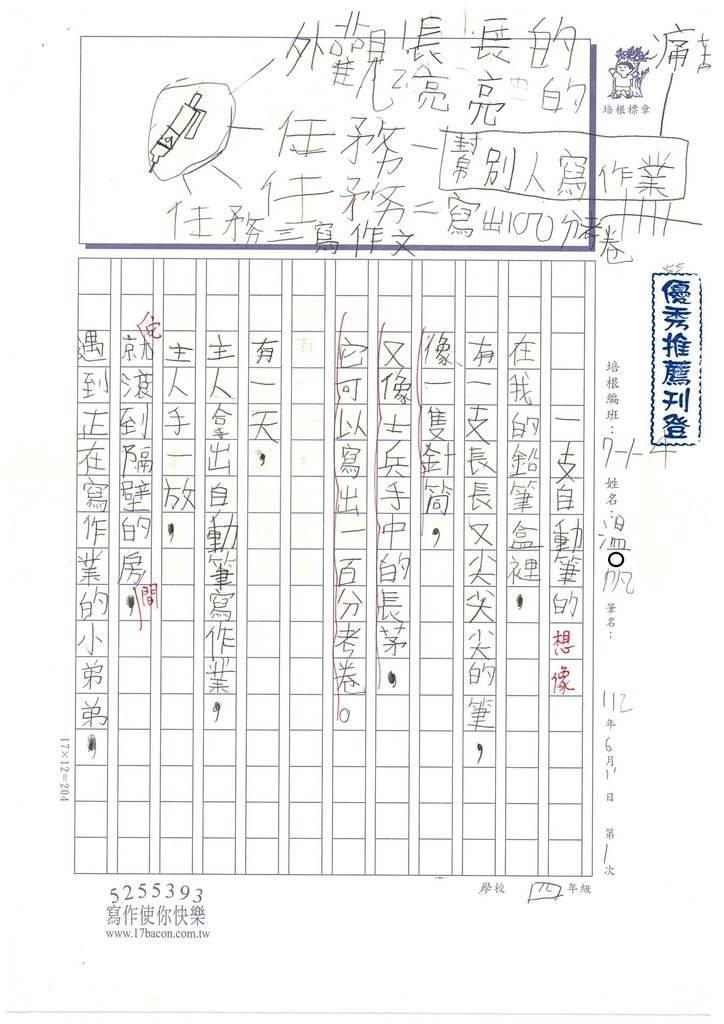 外觀長長的
亮亮的
任務一幫別人寫作業
任務二寫出100分考卷
任務三寫作文
培根標章
優秀推薦刊登
培根編班：
姓名：溫○帆
筆名：
112年6月11日 第1次
一支自動筆的想像
在我的鉛筆盒裡，
有一支長長又尖尖尖的筆，
像一隻針筒，
又像士兵手中的長茅，
它可以寫出一百分考卷。
有一天，
主人拿出自動筆寫作業，
主人手一放，
它就滾到隔壁的房間，
遇到正在寫作業的小弟弟，
17×12=204
學校 四年級
5255393
寫作使你快樂
www.17bacon.com.tw